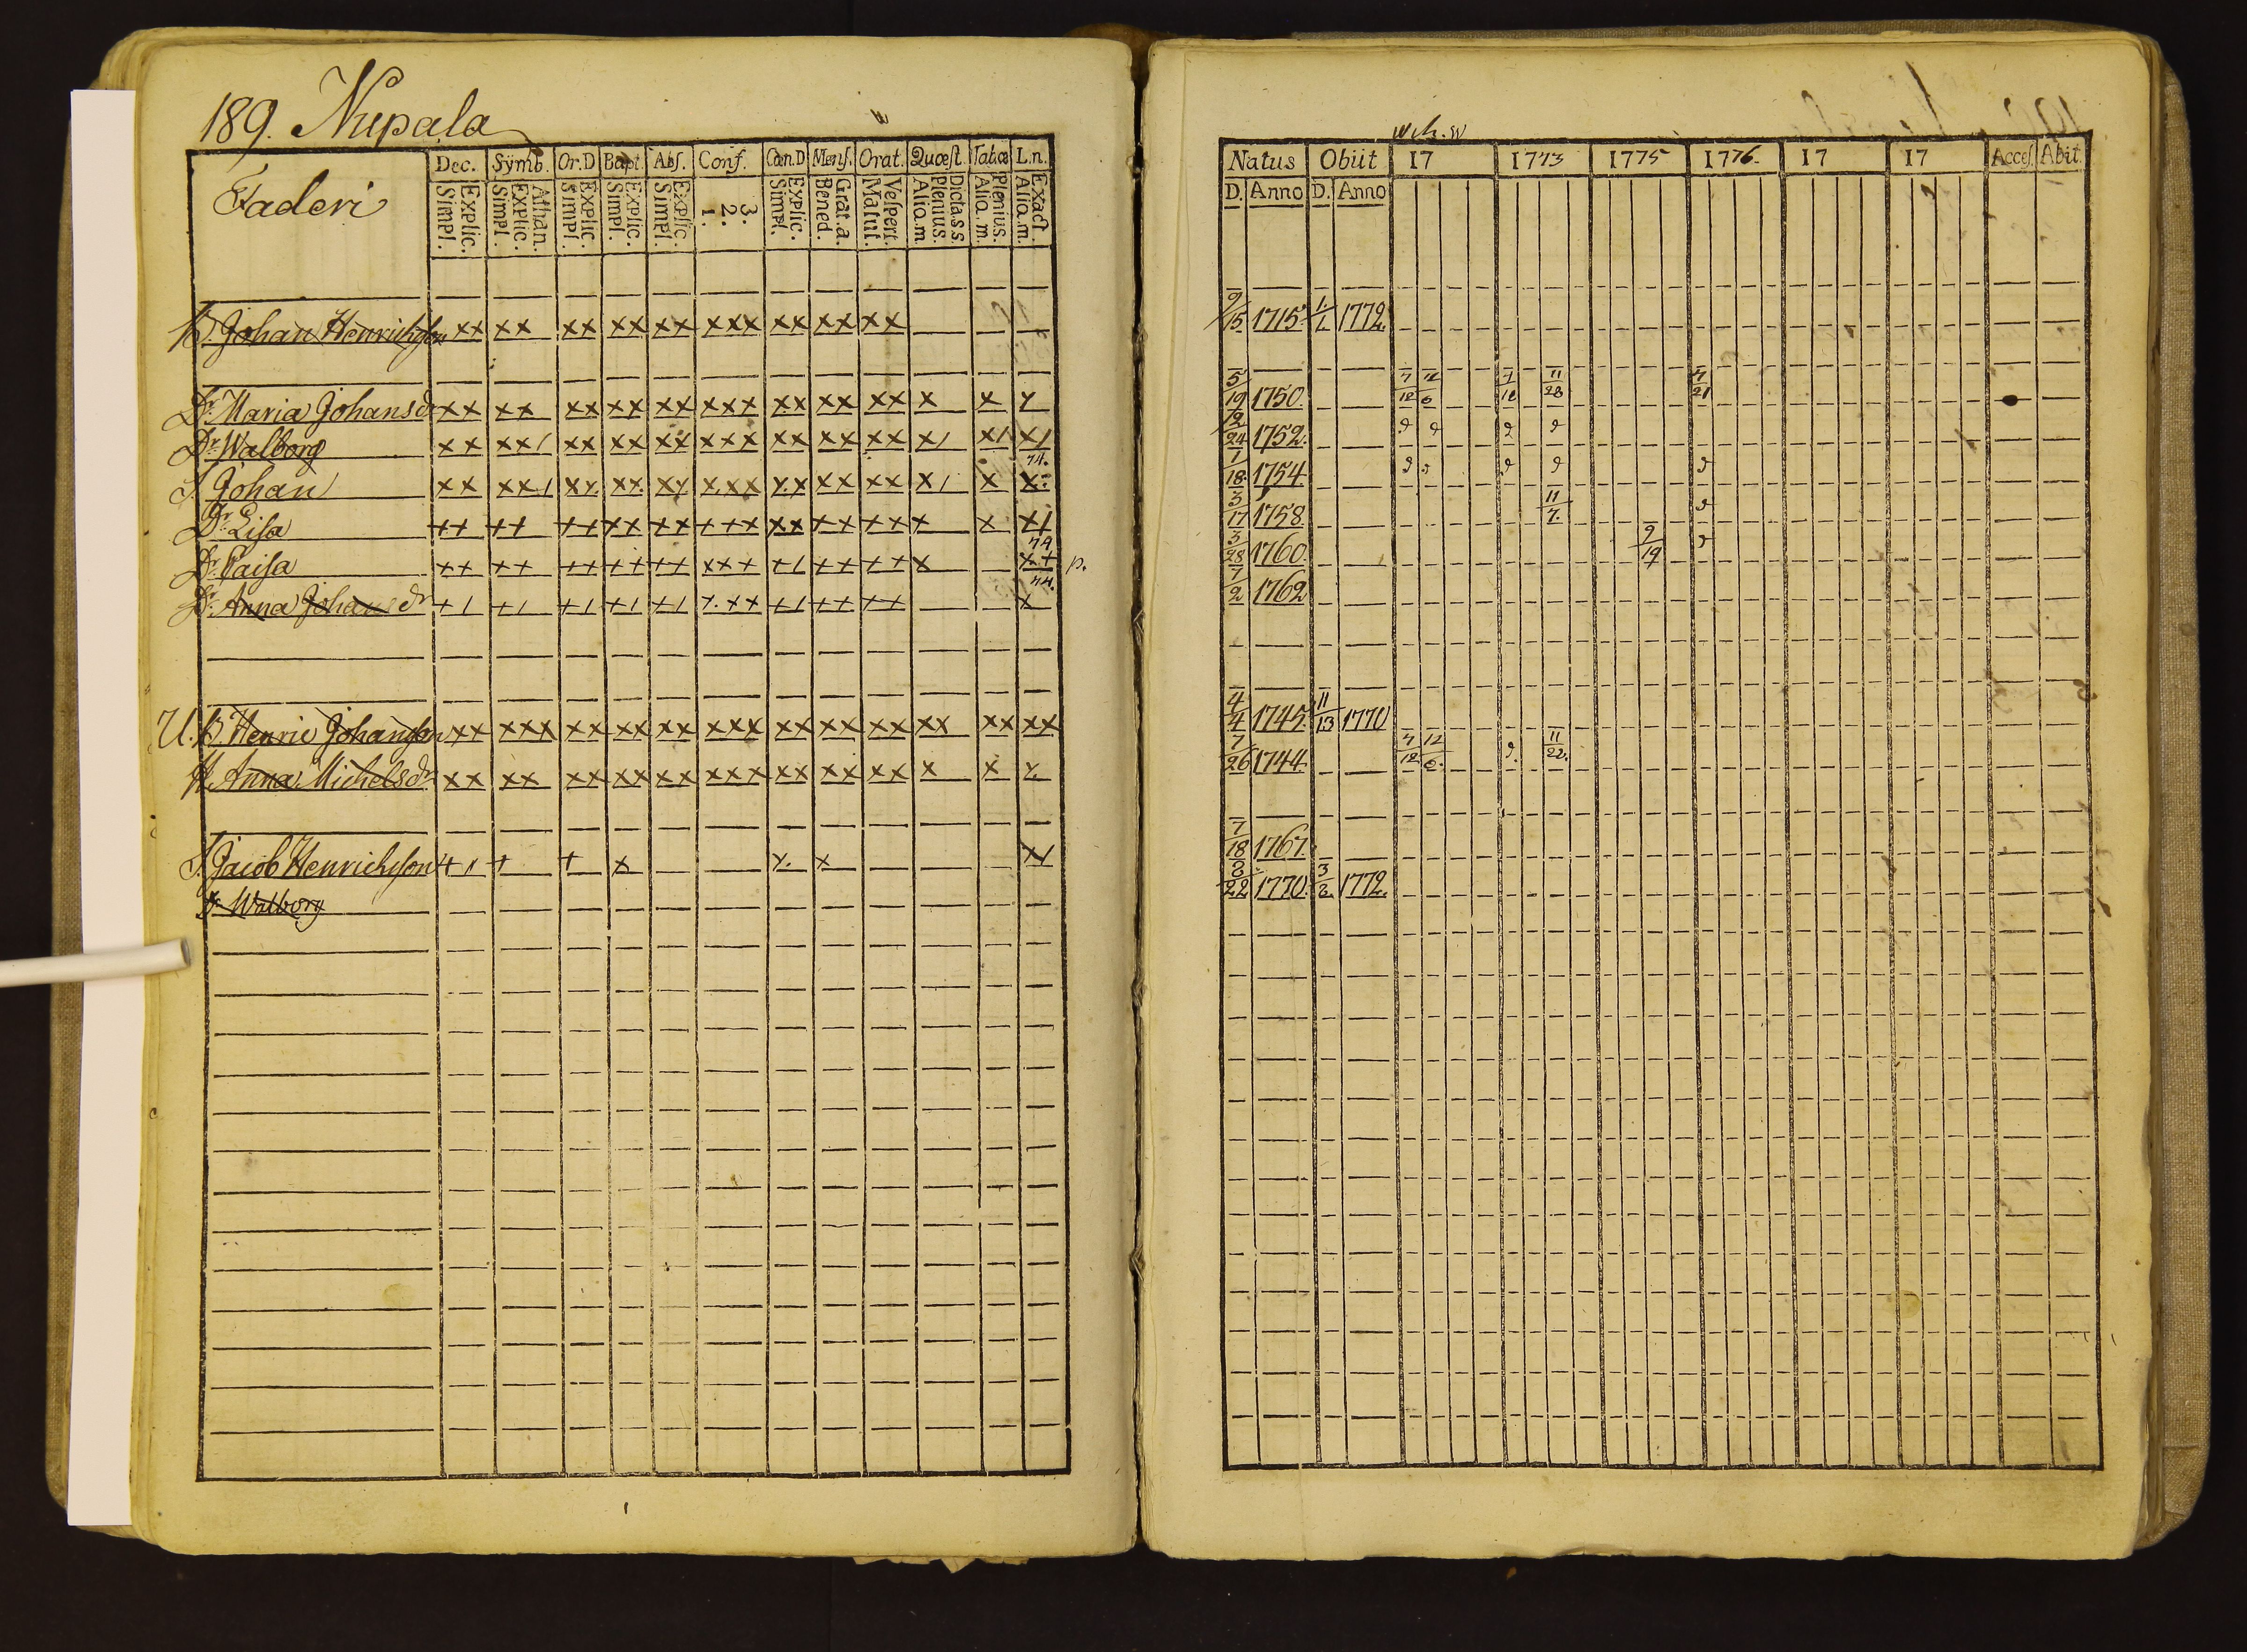 189. Nupala
Faderi
Dec. Symb. Or.D Bapt. Abs. Conf. Cæn.D Mens. Orat. Quæst. Tabcæ L.n.
Simpl. Explic. Simpl. Explic. Athan. Simpl. Explic. Simpl. Explic. Simpl. Explic. 1. 2. 3. Simpl. Explic. Bened. Grat.a. Matut. Vespert. Aliq.m. Plenius. Dicta.ss Aliq.m. Plenius. Aliq.m. Exact.
B. Johan Henrichsson xx xx xx xx xx xxx xx xx xx
Dr. Maria Johansdr xx xx xx xx xx xxx xx xx xx x x x
Dr. Walborg xx xx/ xx xx xx xxx xx xx xx x/ x/ x/
S. Johan xx xx/ xx xx xx xxx xx xx xx x/ x x
Dr. Lisa ++ ++ ++ xx xx +xx xx ++ xx x x x/
Dr. Caisa ++ ++ ++ ++ ++ xx+ +/ ++ ++ x x+ p.
Dr. Anna Johansdr +/ +/ +/ +/ +/ x.xx +/ ++ ++ x
U. B. Henric Johansson xx xxx xx xx xx xxx xx xx xx xx xx xx
H. Anna Michelsdr xx xx xx xx xx xxx xx xx xx x x x
S. Jacob Henrichsson + / + + x x. x x/
Dr. Walborg
Natus Obiit 17 1773 1775 1776. 17 17 Acces. Abit.
D. Anno D. Anno
9/15 1715 1/1 1772.
5/19 1750. 4/12 12/6 4/18 11/28 4/21
12/24 1752.
1/18 1754.
3/17 1758. 11/7.
3/28 1760. 9/19
7/2 1762
4/4 1745. 11/13 1770
7/26 1744. 4/12 12/6. 11/22.
7/18 1767.
8/22 1770. 3/8. 1772.